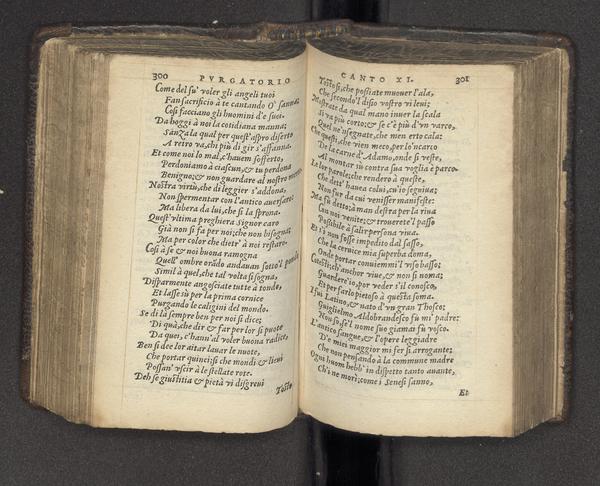 300
PVRGATORIO
Come del su' voler gli angeli tuoi
Fan sacrificio à te cantando O' sanna;
Cosi facciano gli huomini d'e suoi.
Da hoggi à noi la cotidiana manna;
Sanza la qual per quest'aspro diserto
A retro va, chi più di gir s'affanna.
Et come noi lo mal, c'hauem sofferto,
Perdoniamo à ciascun, & tu perdona
Benigno; & non guardare al nostro merto.
Nostra virtù, che di leggier s'addona,
Non spermentar con l'antico auersaro:
Ma libera da lui, che sì la sprona.
Quest'vltima preghiera Signor caro
Già non si fa per noi; che non bisogna;
Ma per color che dietr' à noi restaro.
Così à se & noi buona ramogna
Quell' ombre orādo andauan sotto'l pondo,
Simil à quel, che tal volta si sogna,
Disparmente angosciate tutte à tondo,
Et lasse su per la prima cornice
Purgando le caligini del mondo.
Se di là sempre ben per noi si dice;
Di quà, che dir & far per lor si puote
Da quei, c'hann'al voler buona radice,
Ben si dee lor aitar lauar le note,
Che portar quinci; sì che mondi & lieui
Possan' vscir à le stellate rote.
Deh se giustitia & pietà vi disgreui
Tosto
CANTO XI.
301
Tosto sì, che possiate muouer l'ala,
Che secondo'l disio vostro vi leui;
Mostrate da qual mano inuer la scala
Si va più corto; & se c'è più d'vn varco,
Quel ne'nsegnate, che men erto cala:
Che questi, che vien meco, per lo'ncarco
De la carne d'Adamo, onde si veste,
Al montar sù contra sua voglia è parco.
Le lor parole; che rendero à queste,
Che dett' hauea colui, cu'io seguiua;
Non fur da cui venisser manifeste:
Ma fu detto; à man destra per la riua
Con noi venite; & trouerete'l passo
Possibile à salir persona viua.
Et s'i non fosse impedito dal sasso,
Che la ceruice mia superba doma,
Onde portar conuiemmi'l viso basso;
Cotesti, ch'anchor viue, & non si noma;
Guardere'io, per veder s'il conosco,
Et per farlo pietoso à questa soma.
I fui Latino, & nato d'vn gran Thosco;
Guiglielmo Aldobrandesco fu mi' padre;
Non so, se'l nome suo giamai fu vosco.
L'antico sangue, & l'opere leggiadre
D'e miei maggior mi fer sì arrogante;
Che non pensando à la commune madre
Ogni huom hebb' in dispetto tanto auante,
Ch'i ne mori; come i Senesi sanno,
Et